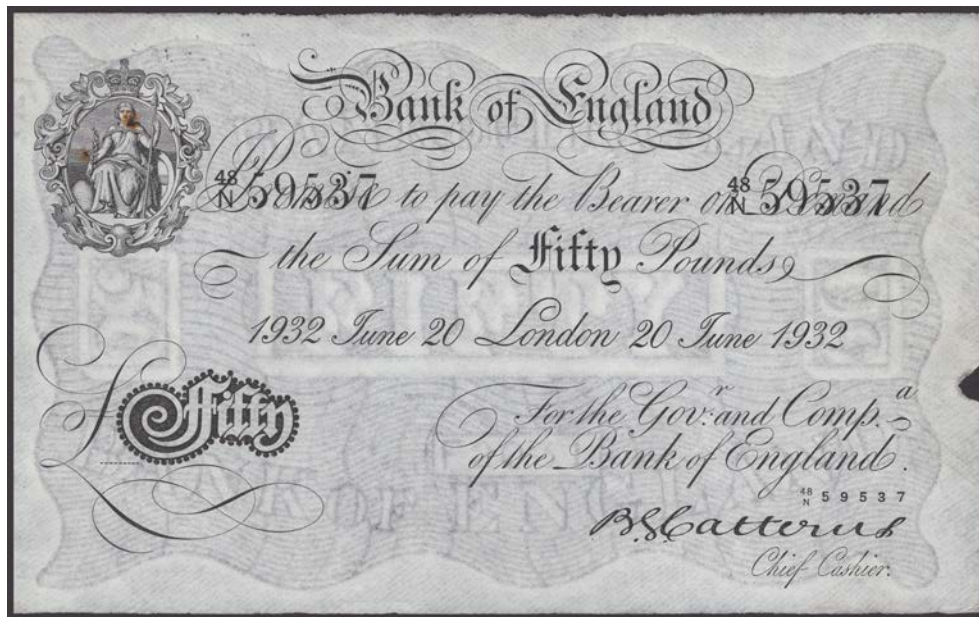 Bank of England
48
N 59537
I Promise to pay the Bearer on Demand
48
N 59537
the Sum of Fifty Pounds
1932 June 20 London 20 June 1932
£ Fifty
For the Gov.r and Comp.a
of the Bank of England.
48
N 59537
B G Catterns
Chief Cashier.
FIFTY
BANK OF ENGLAND